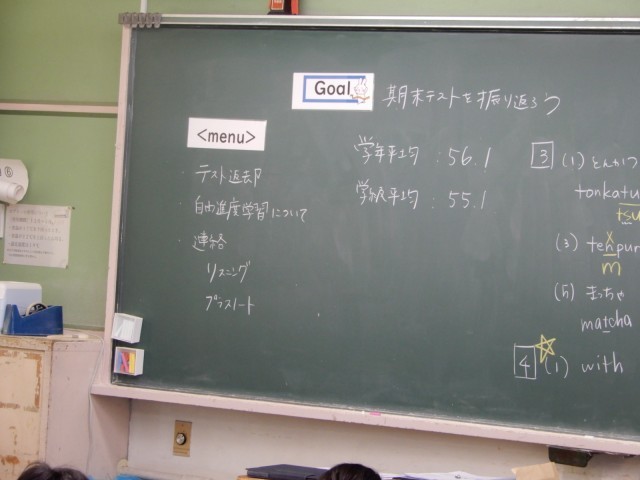 Goal
期末テストを振り返ろう
<menu>
・テスト返却
・自由進度学習について
・連絡
リスニング
プラスノート
学年平均：56.1
学級平均：55.1
3 (1) とんかつ
tonkatu
tsu
(3) tenpur
m
(5) まっちゃ
matcha
4 (1) with